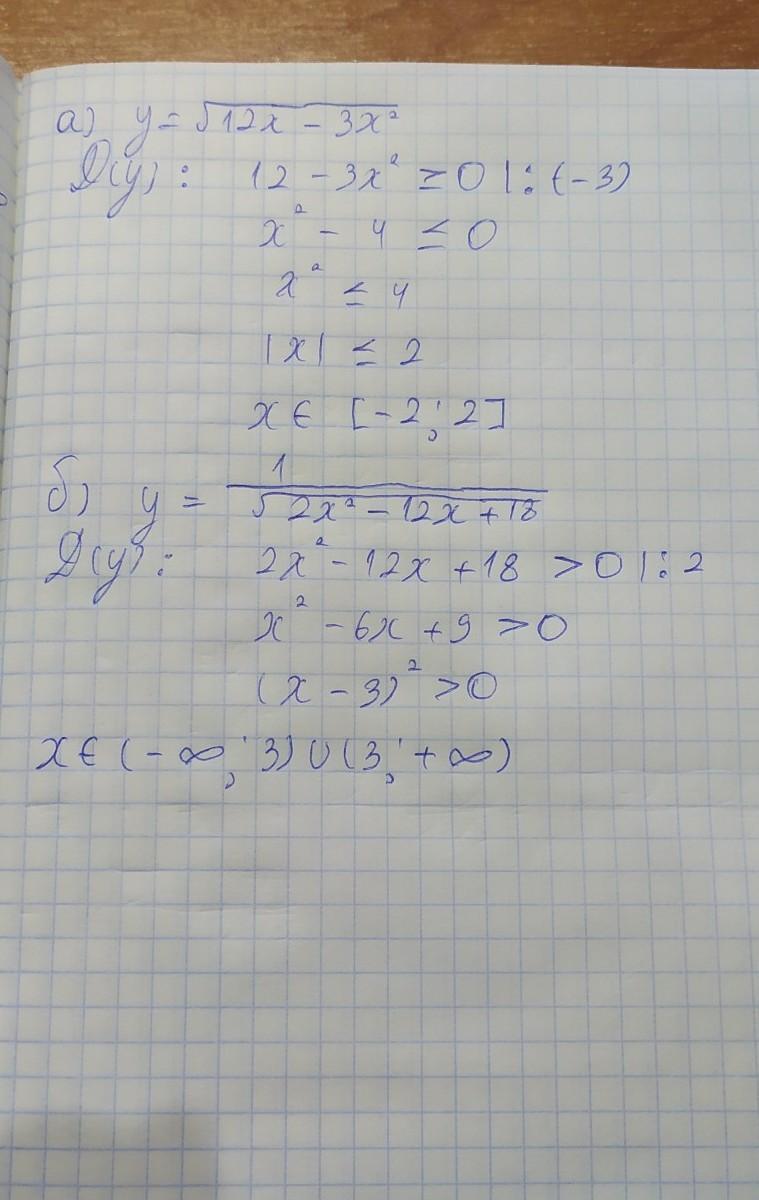 а) y = √12x - 3x²
D(y): 12 - 3x² ≥ 0 | : (-3)
x² - 4 ≤ 0
x² ≤ 4
|x| ≤ 2
x ∈ [-2; 2]
б) y = 1/√2x² - 12x + 18
D(y): 2x² - 12x + 18 > 0 | : 2
x² - 6x + 9 > 0
(x - 3)² > 0
x ∈ (-∞; 3) ∪ (3; +∞)